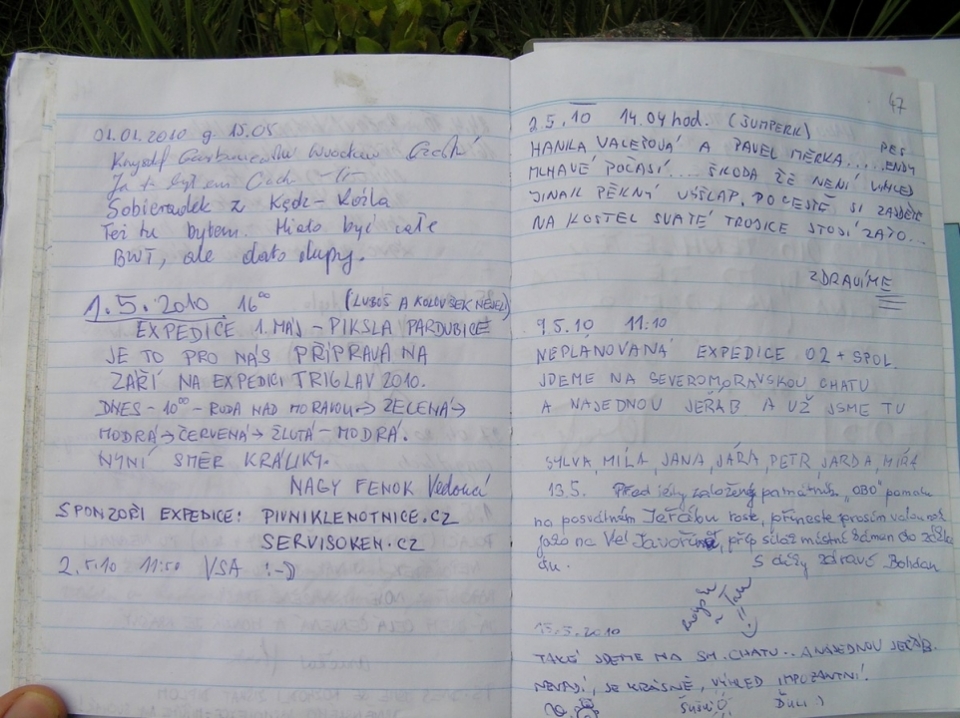 01.01.2010 g. 15.05
Ja też byłem
Sobieradek z Kędz-Koźla
Też tu byłem. Miało być całe
BWT, ale dało dupy.
1.5.2010 16⁰⁰ (LUBOŠ A KOLOUŠEK NEJEL)
EXPEDICE 1. MÁJ - PIKSLA PARDUBICE
JE TO PRO NÁS PŘÍPRAVA NA
ZÁŘÍ NA EXPEDICI TRIGLAV 2010.
DNES - 10⁰⁰ - RUDA NAD MORAVOU → ZELENÁ →
MODRÁ → ČERVENÁ → ŽLUTÁ - MODRÁ.
NYNÍ SMĚR KRÁLÍKY.
NAGY FENOK Vedoucí
SPONZOŘI EXPEDICE: PIVNIKLENOTNICE.CZ
SERVISOKEN.CZ
2.5.10 11:50 VSA :-D
47
2.5.10 14.04 hod. (ŠUMPERK)
HANKA VALEŠOVÁ A PAVEL MĚRKA.....
MLHAVÉ POČASÍ.... ŠKODA ŽE NENÍ VÝHLED
JINAK PĚKNÝ VÝŠLAP, PO CESTĚ SI ZAJDĚTE
NA KOSTEL SVATÉ TROJICE STOJÍ ZATO...
ZDRAVÍME
9.5.10 11:10
NEPLÁNOVANÁ EXPEDICE O2 + SPOL.
JDEME NA SEVEROMORAVSKOU CHATU
A NAJEDNOU JEŘÁB A UŽ JSME TU
SYLVA, MÍLA, JANA, JÁRA, PETR JARDA, MÍRA
13.5. Před léty založený památník "OBO" pomalu
na posvátném Jeřábu roste, přineste prosím valoun
jako na Vel. Javořině, příp. slož místní šáman do základu.
S díky zdraví Bohdan
13.5.2010
TAKÉ JDEME NA SM. CHATU.. A NAJEDNOU JEŘÁB.
NEVADÍ, JE KRÁSNĚ, VÝHLED IMPOZANTNÍ!